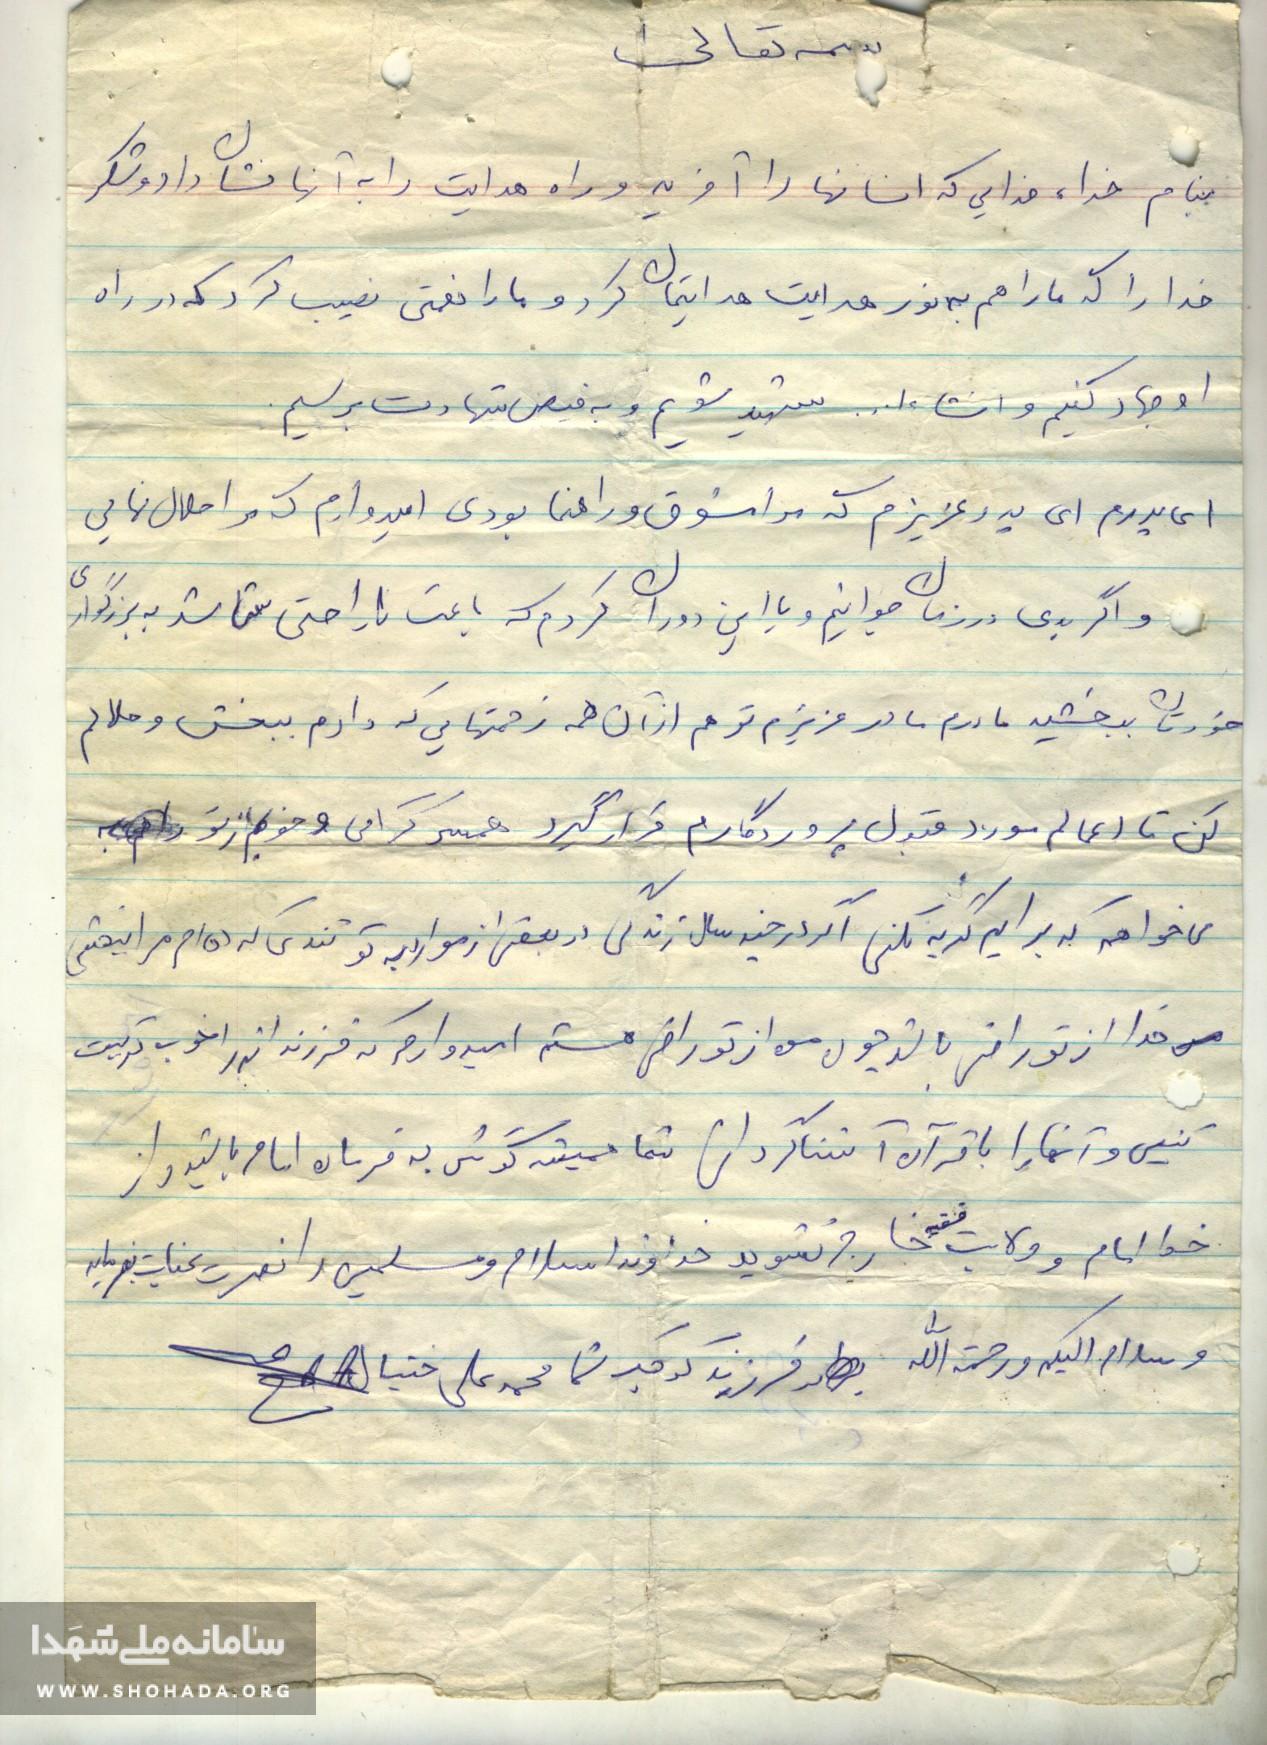 بسمه تعالی
بنام خدا، خدایی که انسانها را آفرید و راه هدایت را به آنها نشان داد و شکر
خدا را که ما را هم به نور هدایت هدایتمان کرد و ما را نعمتی نصیب کرد که در راه
او جهاد کنیم و انشاءا... شهید شویم و به فیض شهادت برسیم.
ای پدرم ای پدر عزیزم که مرا مشوق و راهنما بودی امیدوارم که مرا حلال نمایی
و اگر بدی در زمان جوانیم و یا این دوران کردم که باعث ناراحتی شما شد به بزرگواری
خودتان ببخشید مادرم مادر عزیزم تو هم از آن همه زحمتهایی که دادم ببخش و حلالم
کن تا اعمالم مورد قبول پروردگارم قرار گیرد همسر گرامی و خوبم از تو
می خواهم که برایم گریه نکنی اگر در چند سال زندگی در بعضی از موارد به تو تندی که داشتم مرا ببخشی
خدا از تو راضی باشد چون من از تو راضی هستم امیدوارم که فرزندانم را خوب تربیت
کنی و آنها را با قرآن آشنا گردانی شما همیشه گوش به فرمان امام باشید و از
خط امام و ولایت فقیه خارج نشوید خداوند اسلام و مسلمین را نصرت عنایت بفرماید
و سلام الیکم و رحمته الله فرزند کوچک شما محمد علی
سامانه ملی شهدا
WWW.SHOHADA.ORG